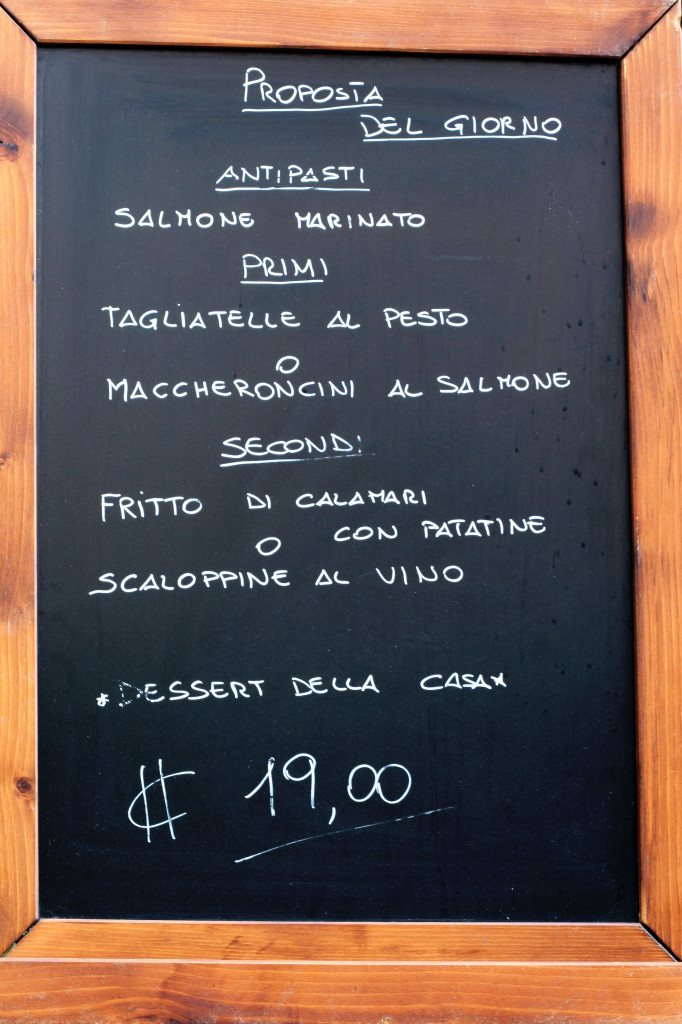 PROPOSTA
DEL GIORNO
ANTIPASTI
SALMONE MARINATO
PRIMI
TAGLIATELLE AL PESTO
O
MACCHERONCINI AL SALMONE
SECONDI
FRITTO DI CALAMARI
CON PATATINE
O
SCALOPPINE AL VINO
*DESSERT DELLA CASA*
€ 19,00